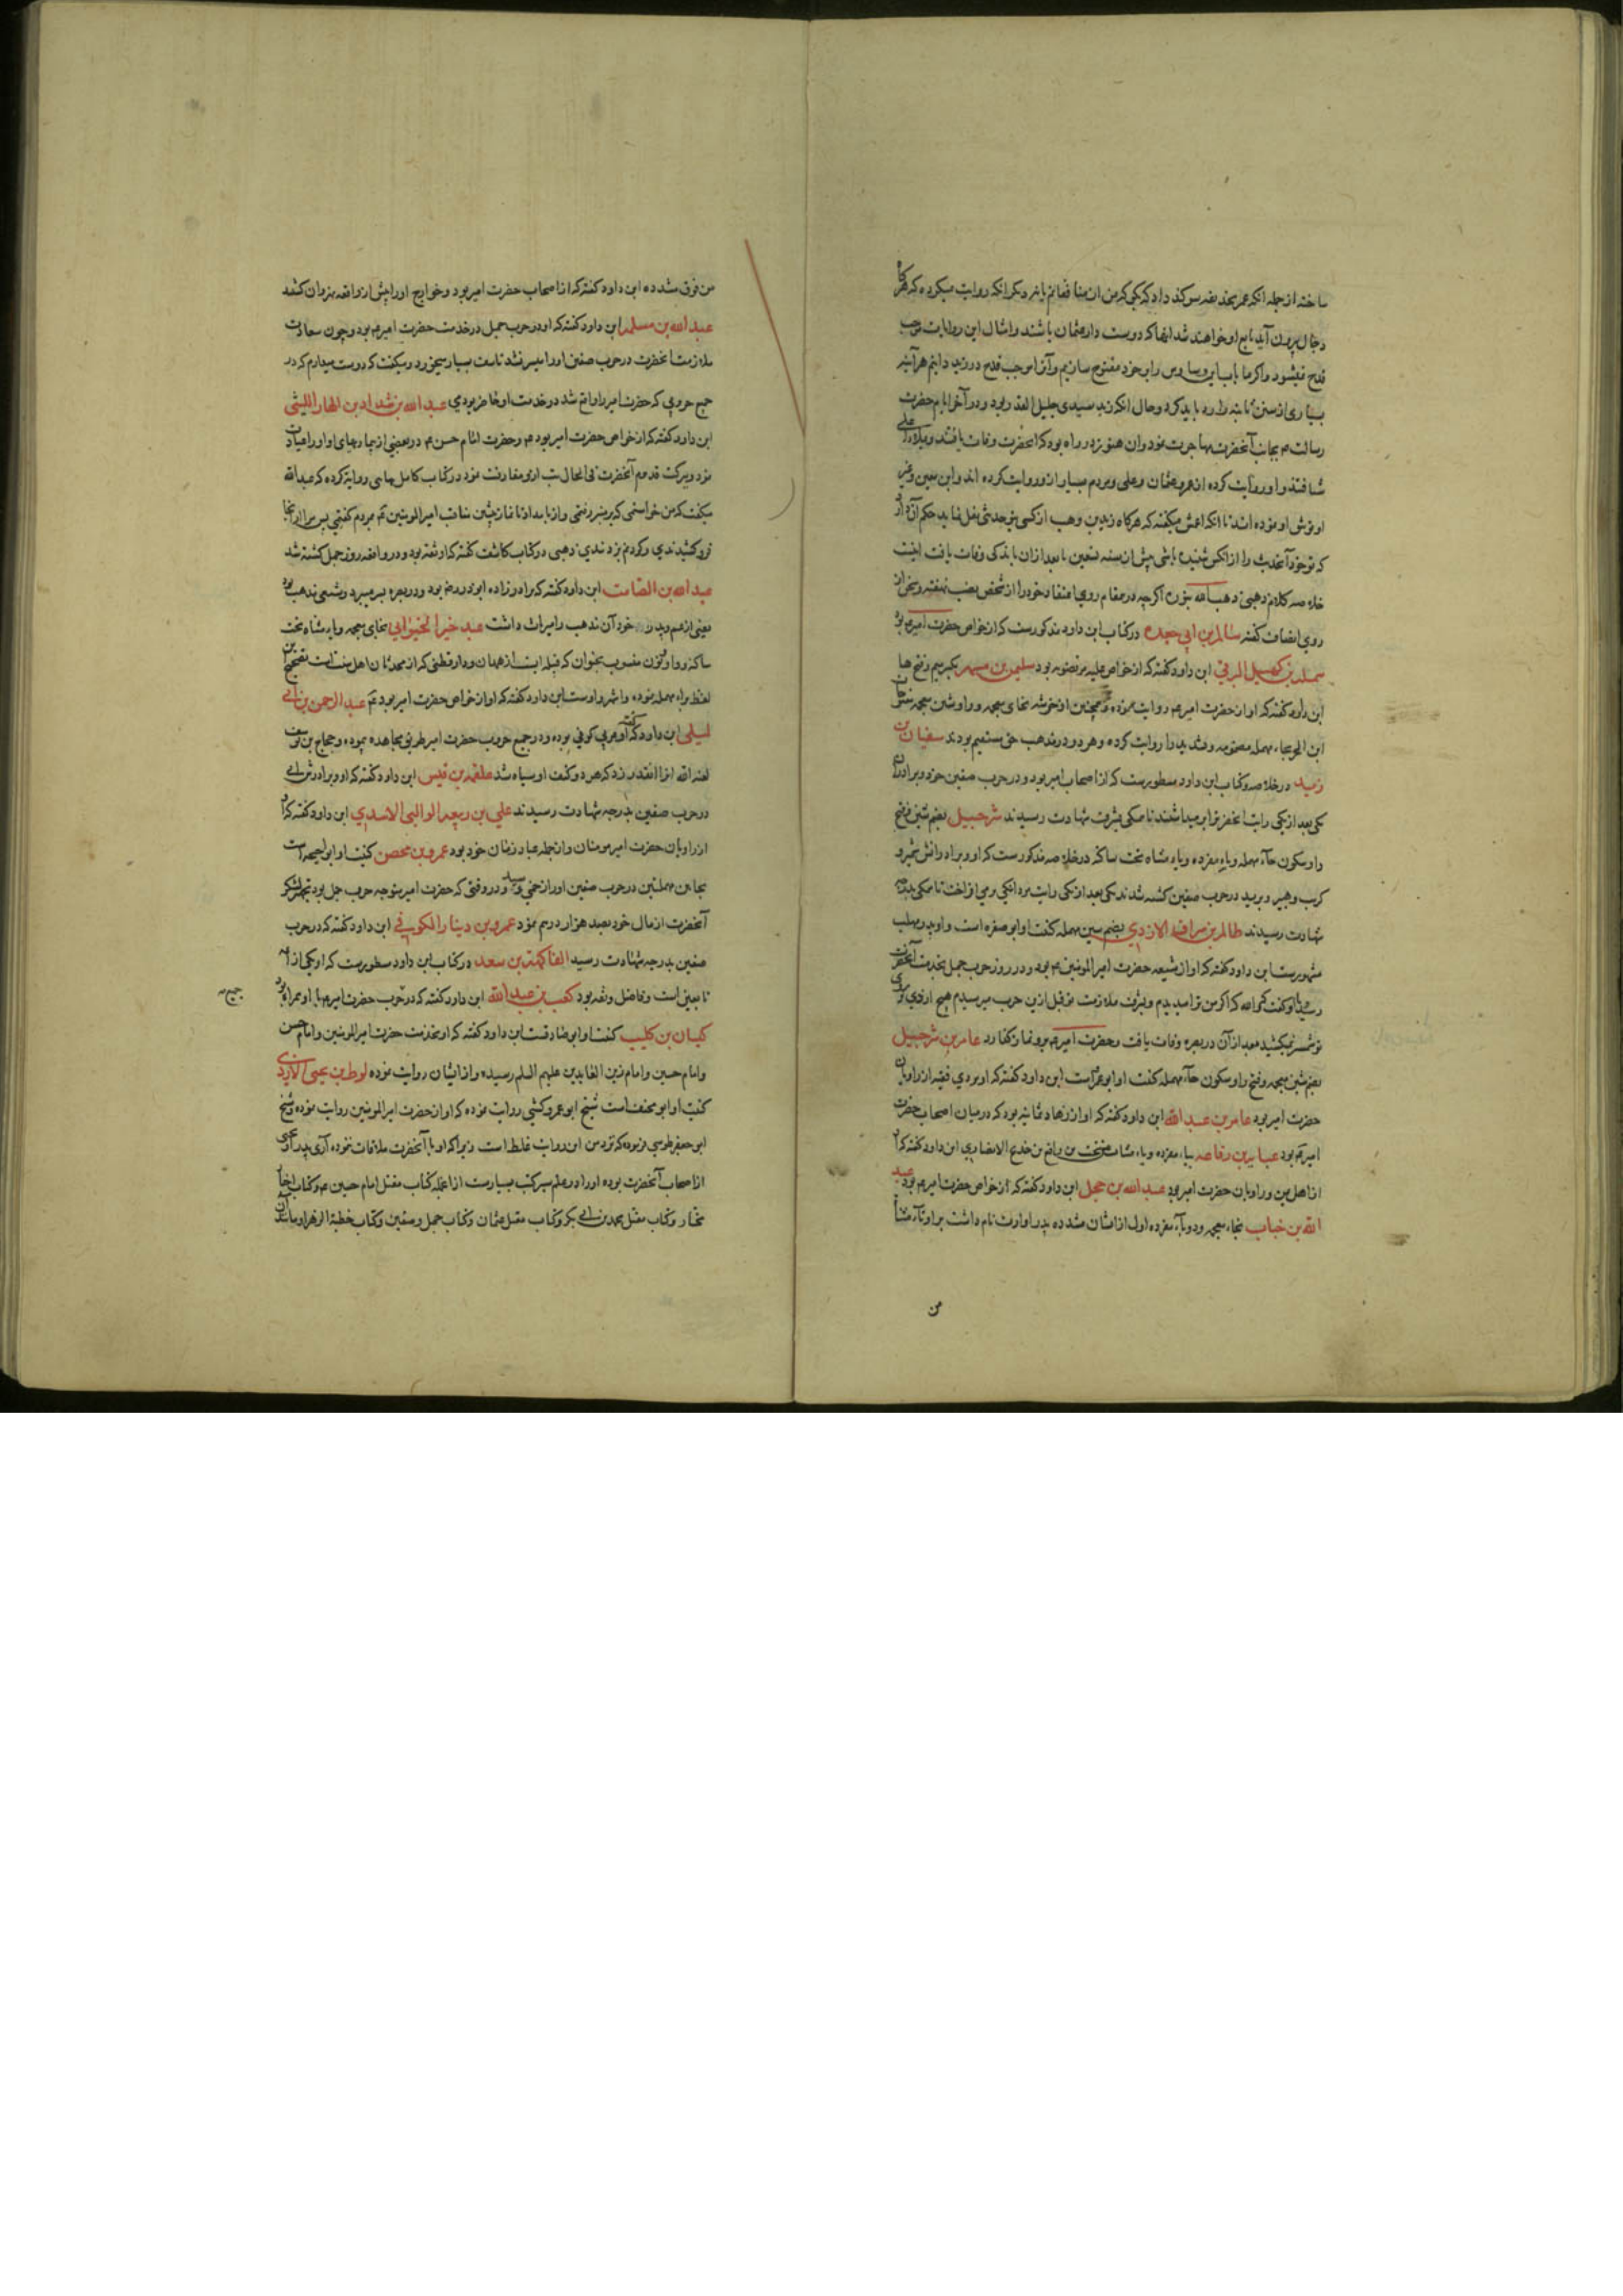 ساخته از جمله انکه عمر بحذیفه سوکند داد که بکی که من از منافقانم یا نه و دیکر انکه روایت میکرده که هرکاه
دجال بیرون آید تابع او خواهند شد انها که دوست دار عثمان باشند و امثال این روایات موجب
قدح میشود و اکر ما باب این وساوس را بر خود مفتوح سازیم و آنرا موجب قدح در زید دانیم هر آینه
بسیاری از سنن ثابته را رد باید کرد و حال انکه زید سیدی جلیل القدر بود و در آخر ایام حضرت
رسالت م بجانب آنحضرت مهاجرت نمود و ان هنوز در راه بود که انحضرت وفات یافتند
شتافتند و او روایت کرده از عمر و عثمان و علی و مردم بسیار از و روایت کرده اند و ابن معین و غیر
او توثیق او نموده اند تا انکه اعمش میکفته که هرکاه زید بن وهب از کسی بتو حدیثی نقل نماید حکم آن دارد
که تو خود آنحدیث را از انکس شنیده باشی پیش از سنه تسعین یا بعد از ان باندکی وفات یافت اینست
خلاصه کلام ذهبی ذهب الله بنوره اکرچه در مقام روی اعتقاد خود را از شخص نصب نهفته و سخن از
روی انصاف کفته سالم بن ابی جعده در کتاب ابن داود مذکورست که از خواص حضرت امیر م بود
سلمه بن کهیل البرقی ابن داود کفته که از خواص علیه بود سلیم بن مسهر بکسر میم و فتح ها
ابن داود کفته که او از حضرت امیر م روایت نموده و همچنین او خرشه بخای معجمه و را و شین معجمه مفتوحات
ابن الحر بحاء مهمله مضمومه و را روایت کرده و هر دو در مذهب حق مستقیم بودند سفیان بن
زید در خلاصه و کتاب ابن داود مسطورست که از اصحاب امیر بود و در حرب صفین خود و برادران
یکی بعد از یکی رایت انحضرت را بر میداشتند تا همکی بشرف شهادت رسیدند شرحبیل بضم شین و فتح
را و سکون حاء مهمله و باء مفرده و یاء مثناه تحت ساکنه در خلاصه مذکورست که او و برادرانش شمر و
کریب و هبیر و برید در حرب صفین کشته شدند یکی بعد از یکی رایت بر میداشتند تا همکی بدرجه
شهادت رسیدند ظالم بن سراقه الازدی بضم سین مهمله کنیت او ابو صفره است و او پدر مهلب
مشهورست ابن داود کفته که او از شیعه حضرت امیر المؤمنین م بود و در روز حرب جمل بخدمت آنحضرت
رسید و کفت که والله که اکر من ترا میدیدم و بشرف ملازمت تو قبل ازین حرب میرسیدم هیچ ازدی بر روی
تو شمشیر نمیکشید بعد از آن در بصره وفات یافت و حضرت امیر م برو نماز کذارد عامر بن شرحبیل
بضم شین معجمه و فتح را و سکون حاء مهمله کنیت او ابو عمر است ابن داود کفته که او مردی فقیه از راویان
حضرت امیر بود عامر بن عبد الله ابن داود کفته که او از زهاد ثمانیه بود که در میان اصحاب حضرت
امیر م بود عبایه بن رفاعه بباء مفرده و یاء مثناه تحت بن رافع بن خدیج الانصاری ابن داود کفته که او
از اهل یمن و راویان حضرت امیر بود عبد الله بن حجل ابن داود کفته که از خواص حضرت امیر م بود عبد
الله بن خباب بخاء معجمه و دو باء مفرده اول از ایشان مشدده پدر او ارت نام داشت براء و تاء مثناة
من
من فوق مشدده ابن داود کفته که از اصحاب حضرت امیر بود و خوارج او را پیش از واقعه نهروان کشتند
عبد الله بن مسلمه ابن داود کفته که او در حرب جمل در خدمت حضرت امیر م بود و چون سعادت
ملازمت انحضرت در حرب صفین او را میسر نشد تاسف بسیار میخورد و میکفت که دوست میدارم که در
جمیع حروبی که حضرت امیر را واقع شد در خدمت او حاضر بودمی عبد الله بن شداد بن الهاد اللیثی
ابن داود کفته که از خواص حضرت امیر بود م و حضرت امام حسن م در بعضی از بیماریهای او او را عیادت
نمود و ببرکت قدوم آنحضرت فی الحال تب ازو مفارقت نمود و در کتاب کامل بهائی روایة کرده که عبد الله
میکفت که من خواستمی که بر منبر رفتمی و از بامداد تا نماز پیشین مناقب امیر المؤمنین م بمردم کفتمی پس مرا از انجا
فرو کشیدندی و کردنم بزدندی ذهبی در کتاب کاشف کفته که او ثقه بود و در واقعه روز جمل کشته شد
عبد الله بن الصامت ابن داود کفته که برادر زاده ابوذر رض بود و در بصره بسر میبرد و شیعی مذهب بود
یعنی از عم و پدر خود آن مذهب را میراث داشت عبد خیر الخیوانی بخای معجمه و یاء مثناه تحت
ساکنه و واو و نون منسوب بخیوان که قبیله ایست از همدان و دارقطنی که از محدثان اهل سنت است تصحیح این
لفظ براء مهمله نموده و اشهر واوست ابن داود کفته که او از خواص حضرت امیر بود م عبد الرحمن بن ابی
لیلی ابن داود کفته که او عربی کوفی بوده و در جمیع حروب حضرت امیر طریق مجاهده نموده و حجاج بن یوسف
لعنه الله او را انقدر زد که هر دو کتف او سیاه شد علقمه بن قیس ابن داود کفته که او و برادرش ابی
در حرب صفین بدرجه شهادت رسیدند علی بن ربیعه الوالبی الاسدی ابن داود کفته که او
از راویان حضرت امیر مومنان و از جمله عباد زمان خود بود عمرو بن محصن کنیت او ابو احیحه است
بحایین مهملتین در حرب صفین او را زخمی رسید و در وقتی که حضرت امیر متوجه حرب جمل بود تجهیز لشکر
آنحضرت از مال خود بصد هزار درهم نمود عمرو بن دینار الکوفی ابن داود کفته که در حرب
صفین بدرجه شهادت رسید الفاکهة بن سعد در کتاب ابن داود مسطورست که او یکی از
تابعین است و فاضل و ثقه بود کعب بن عبد الله ابن داود کفته که در حرب حضرت امیر م با او همراه بود
جمیع
کیسان بن کلیب کنیت او ابو صادقست ابن داود کفته که او بخدمت حضرت امیر المؤمنین و امام حسن
و امام حسین و امام زین العابدین علیهم السلم رسیده و از ایشان روایت نموده لوط بن یحیی الازدی
کنیت او ابو مخنف است شیخ ابو عمرو کشی روایت نموده که او از حضرت امیر المؤمنین روایت نموده و شیخ
ابو جعفر طوسی فرموده که نزد من این روایت غلط است زیرا که او با آنحضرت ملاقات ننموده آری پدر او یحیی
از اصحاب آنحضرت بوده او را در علم سیر کتب بسیارست از انجمله کتاب مقتل امام حسین م و کتاب اخبار
مختار و کتاب مقتل محمد بن ابی بکر و کتاب مقتل عثمان و کتاب جمل و صفین و کتاب خطبة الزهرا و مانند ان